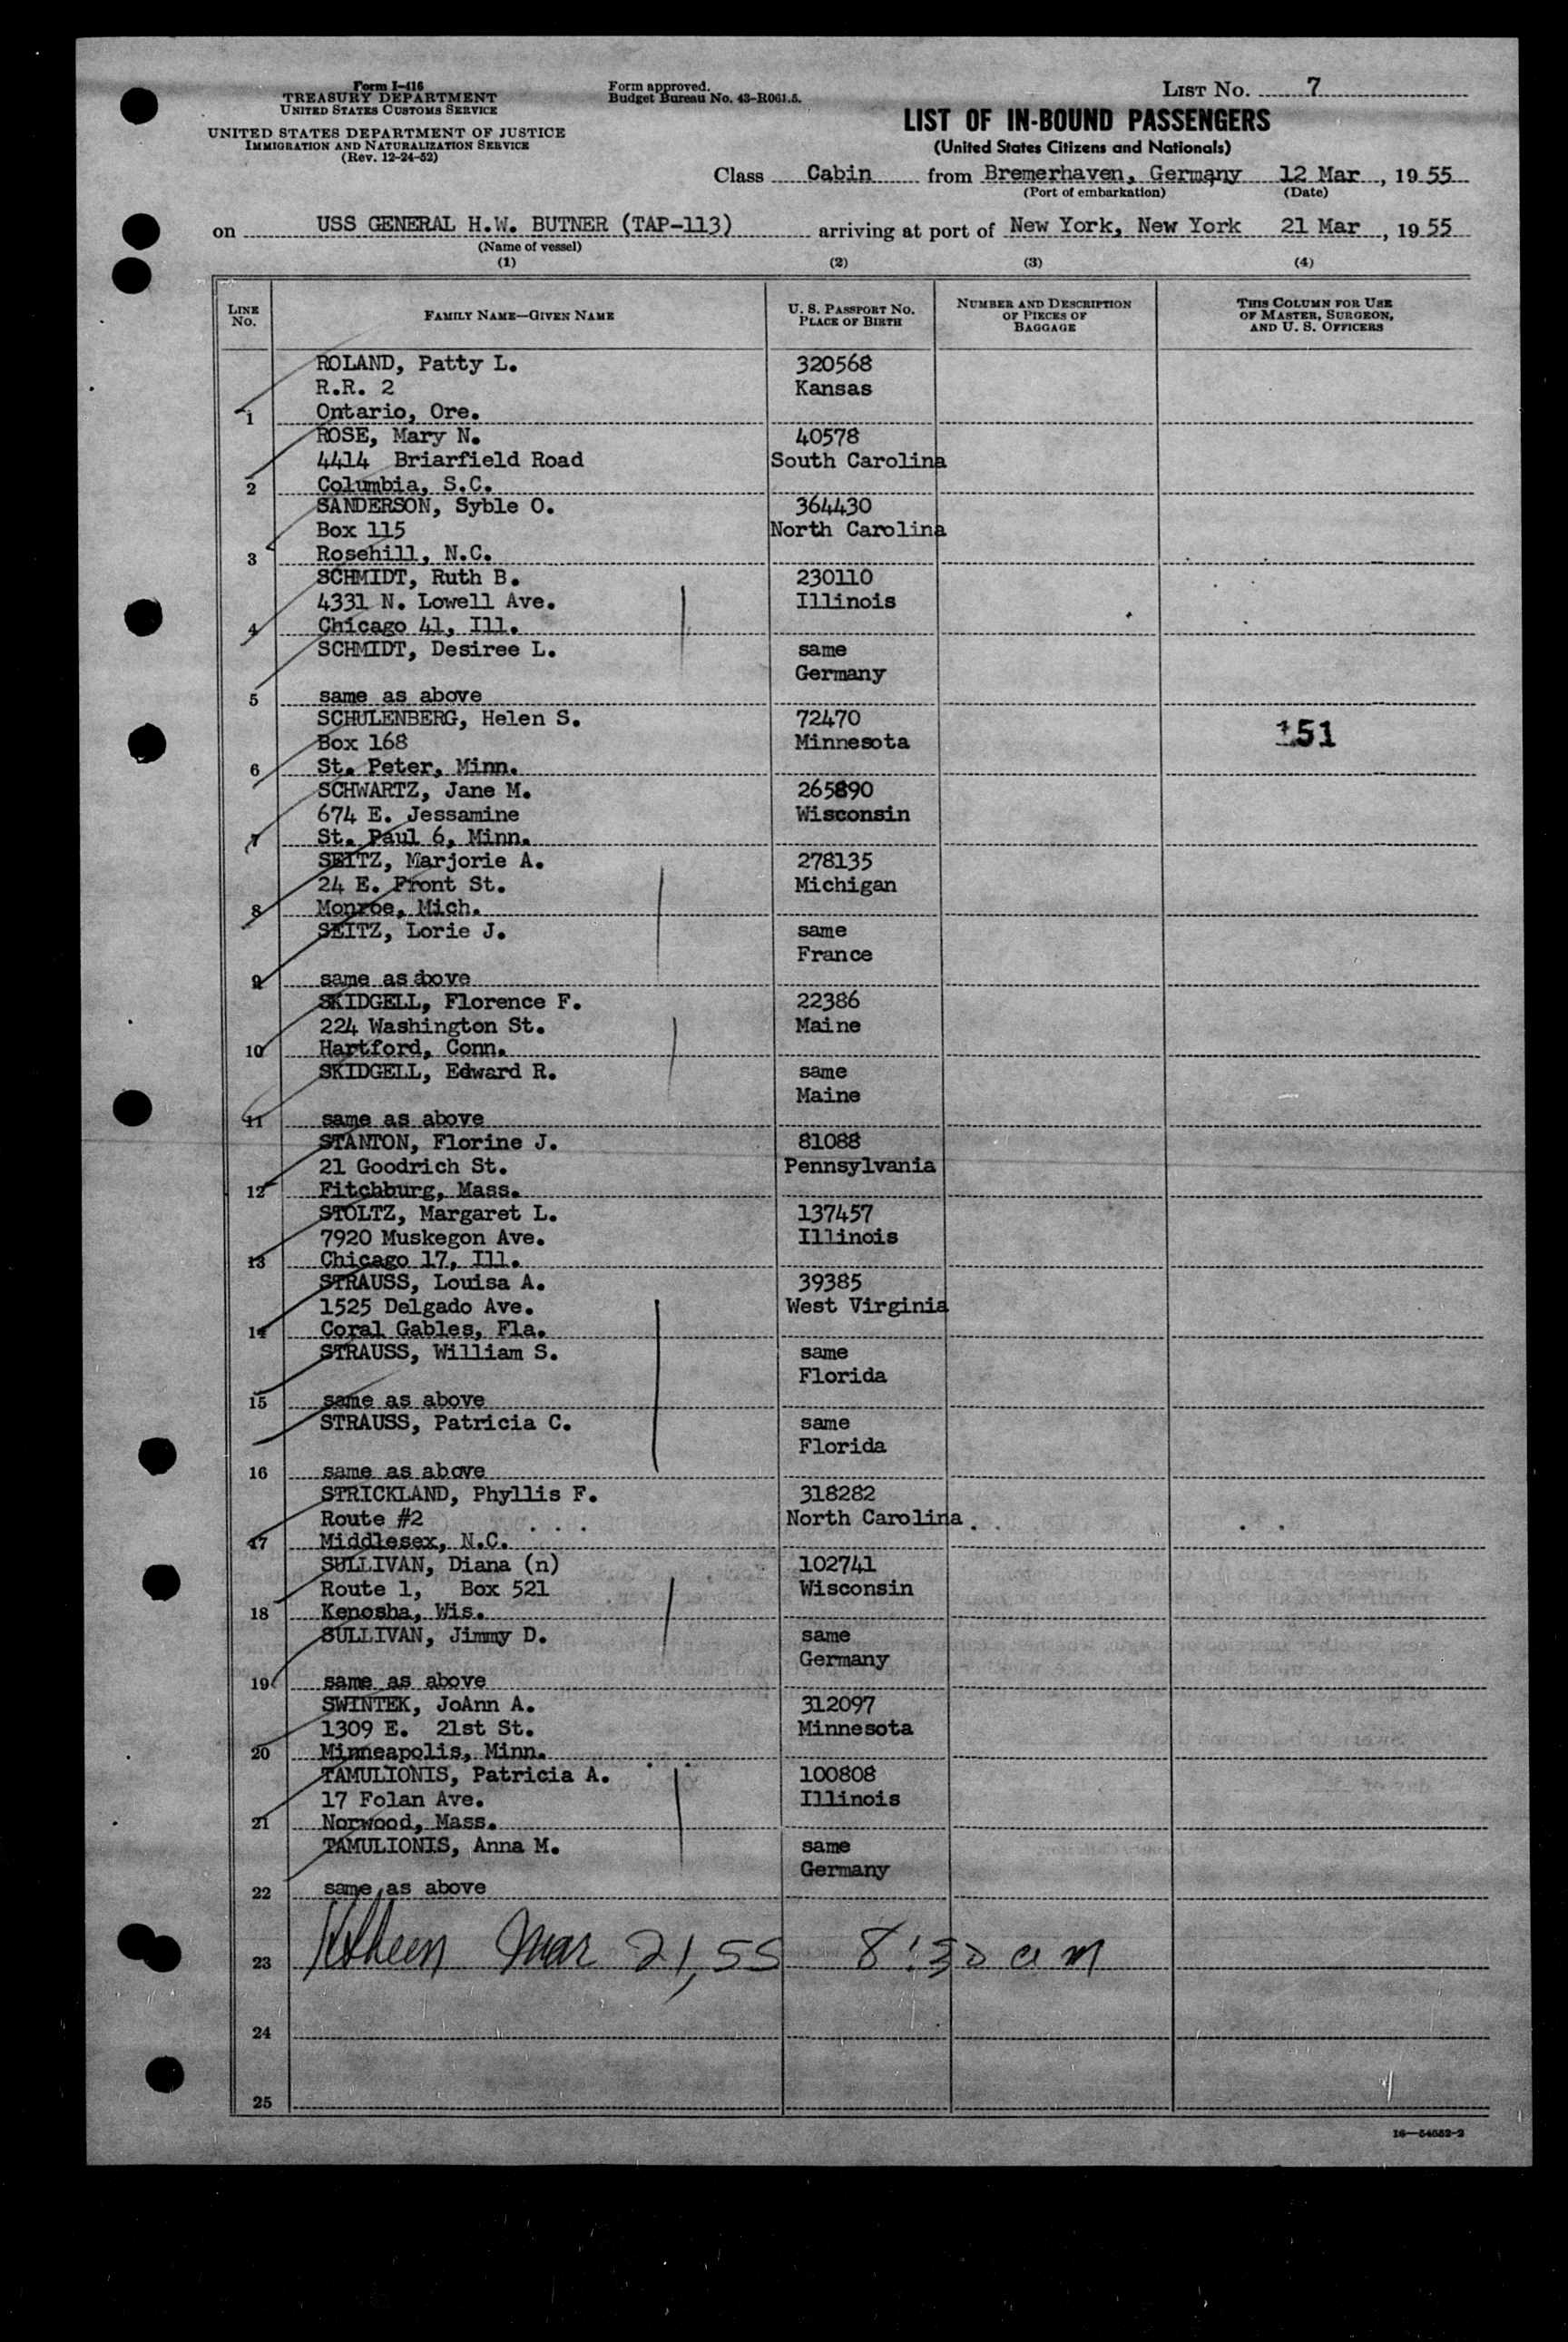 Form I-416
TREASURY DEPARTMENT
UNITED STATES CUSTOMS SERVICE
UNITED STATES DEPARTMENT OF JUSTICE
IMMIGRATION AND NATURALIZATION SERVICE
(Rev. 12-24-52)
Form approved.
Budget Bureau No. 43-R061.5.
LIST NO. 7
LIST OF IN-BOUND PASSENGERS
(United States Citizens and Nationals)
Class Cabin from Bremerhaven, Germany 12 Mar, 1955
(Port of embarkation) (Date)
on USS GENERAL H.W. BUTNER (TAP-113) arriving at port of New York, New York 21 Mar, 1955
(Name of vessel)
(1) (2) (3) (4)
LINE NO. FAMILY NAME—GIVEN NAME U. S. PASSPORT NO. PLACE OF BIRTH NUMBER AND DESCRIPTION OF PIECES OF BAGGAGE THIS COLUMN FOR USE OF MASTER, SURGEON, AND U. S. OFFICERS
ROLAND, Patty L. 320568
R.R. 2 Kansas
1 Ontario, Ore.
ROSE, Mary N. 40578
4414 Briarfield Road South Carolina
2 Columbia, S.C.
SANDERSON, Syble O. 364430
Box 115 North Carolina
3 Rosehill, N.C.
SCHMIDT, Ruth B. 230110
4331 N. Lowell Ave. Illinois
4 Chicago 41, Ill.
SCHMIDT, Desiree L. same
Germany
5 same as above
SCHULENBERG, Helen S. 72470
Box 168 Minnesota 151
6 St. Peter, Minn.
SCHWARTZ, Jane M. 265890
674 E. Jessamine Wisconsin
7 St. Paul 6, Minn.
SEITZ, Marjorie A. 278135
24 E. Front St. Michigan
8 Monroe, Mich.
SEITZ, Lorie J. same
France
9 same as above
SKIDGELL, Florence F. 22386
224 Washington St. Maine
10 Hartford, Conn.
SKIDGELL, Edward R. same
Maine
11 same as above
STANTON, Florine J. 81088
21 Goodrich St. Pennsylvania
12 Fitchburg, Mass.
STOLTZ, Margaret L. 137457
7920 Muskegon Ave. Illinois
13 Chicago 17, Ill.
STRAUSS, Louisa A. 39385
1525 Delgado Ave. West Virginia
14 Coral Gables, Fla.
STRAUSS, William S. same
Florida
15 same as above
STRAUSS, Patricia C. same
Florida
16 same as above
STRICKLAND, Phyllis F. 318282
Route #2 North Carolina
17 Middlesex, N.C.
SULLIVAN, Diana (n) 102741
Route 1, Box 521 Wisconsin
18 Kenosha, Wis.
SULLIVAN, Jimmy D. same
Germany
19 same as above
SWINTEK, JoAnn A. 312097
1309 E. 21st St. Minnesota
20 Minneapolis, Minn.
TAMULIONIS, Patricia A. 100808
17 Folan Ave. Illinois
21 Norwood, Mass.
TAMULIONIS, Anna M. same
Germany
22 same as above
23 Mar 21, 55 8:30 am
24
25
16—54552-2